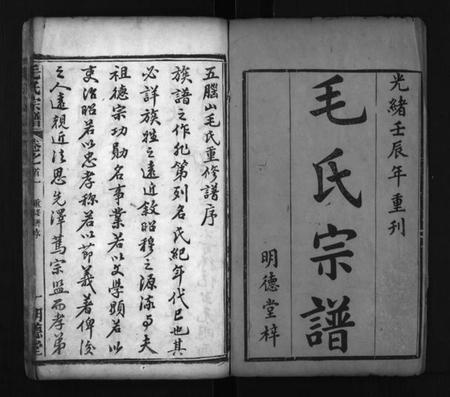 光緒壬辰年重刊
毛氏宗譜
明德堂梓
五腦山毛氏重修譜序
族譜之作非第列名氏紀年代已也其
必詳族姓之遠近敘昭穆之源流與夫
祖德宗功勛名事業若以文學顯若以
吏治昭若以忠孝稱若以節義著俾後
之人遠親近法思先澤篤宗盟而孝弟
毛氏宗譜
卷之首一
明德堂